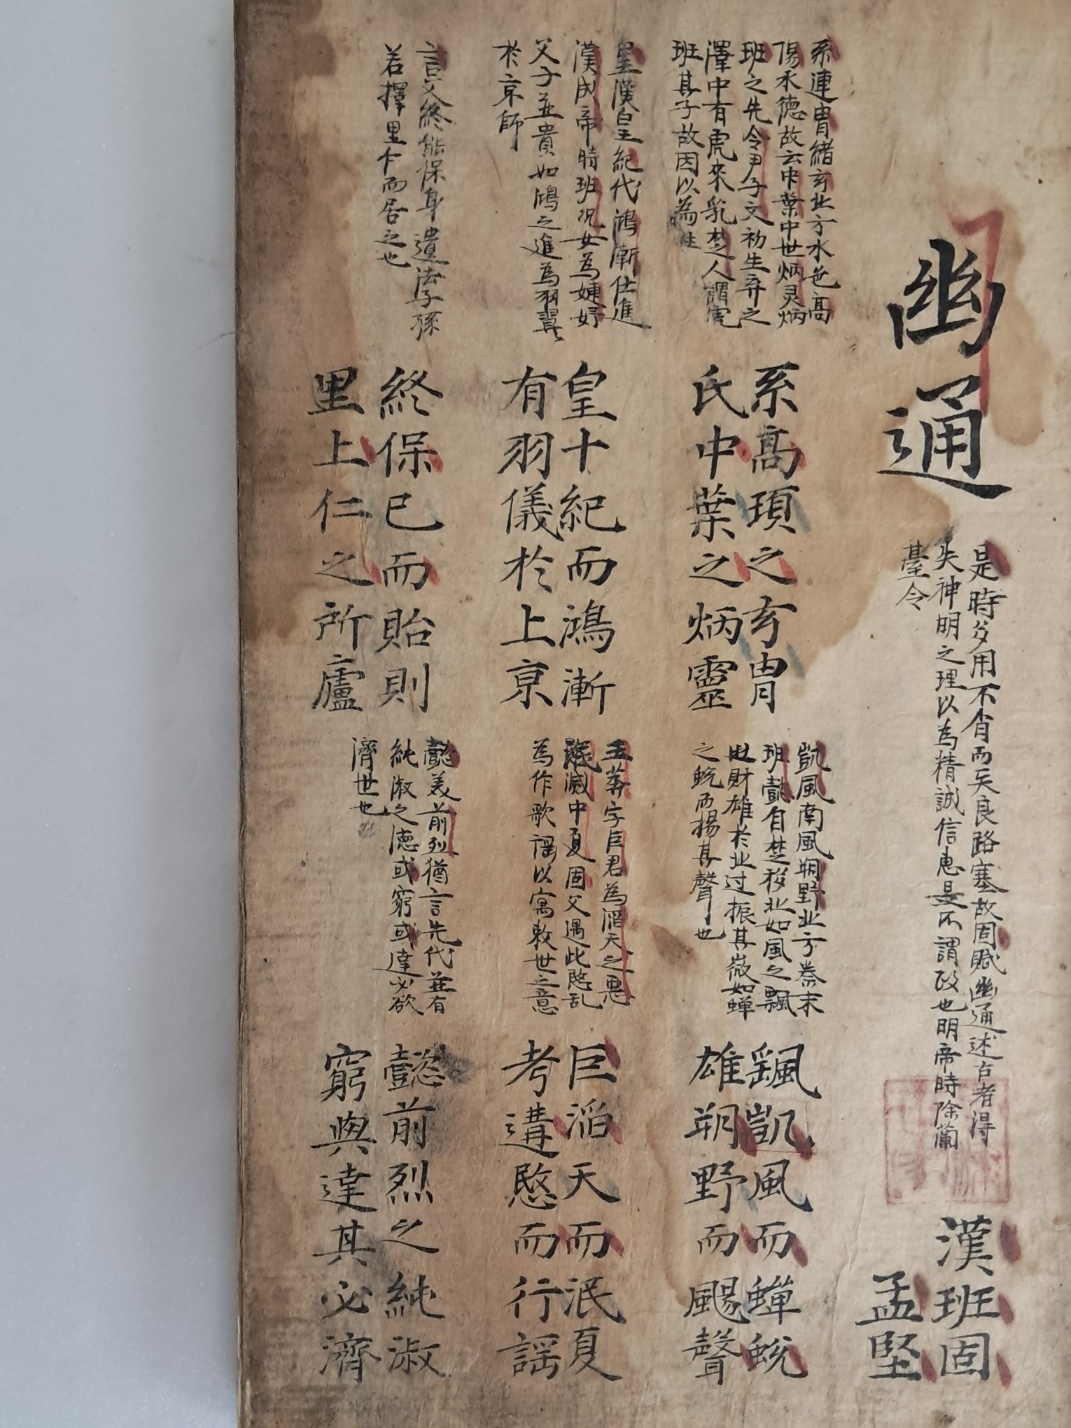 幽通
是時多用不肖而天良路塞故固賦幽通述古者得
失神明之理以為精誠信惠是不謂政也明帝時除蘭
臺令
漢班固
孟堅
系連冑緒玄北方水色高
陽水德故云中葉中世炳灵炳
班之先令尹子文初生弃之
澤中有虎来乳楚人謂虎
班其子故因以為姓
系髙頊之玄冑
氏中葉之炳靈
凱風南風朔野北方秦末
班懿自楚移北如風之飄
財雄於北过振其微如蟬
之蛻而揚其聲也
飊凱風而蟬蛻
雄朔野而颺聲
皇漢皇紀代鴻漸仕進
漢成帝時班况女為婕妤
父子並貴如鴻之進為羽翼
於京師
皇十紀而鴻漸
有羽儀於上京
王莽字巨君為滔天之惡
泯滅中夏固父遇此愍乱
為作歌謡以寓救世之意
巨滔天而泯夏
考遘愍而行謡
言父終能保身遺法子孫
若擇里仁而居之也
終保已而貽則
里上仁之所廬
懿美前列猶言先代並有
純淑之德或窮或達必欲
濟世也
懿前烈之純淑
窮與達其必濟